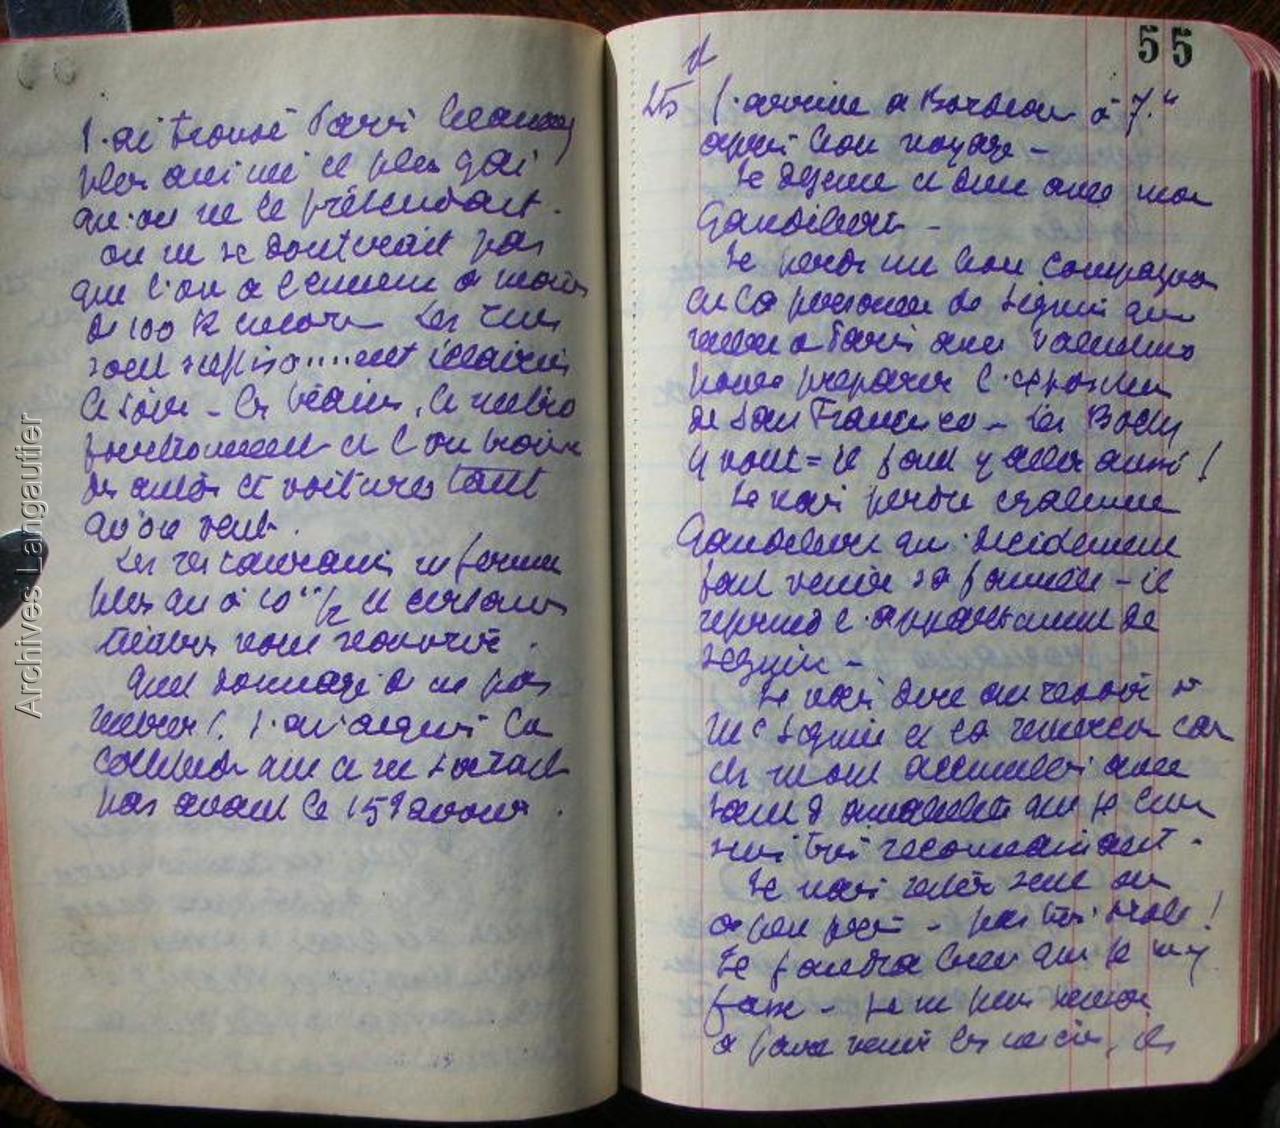 J'ai trouvé Paris beaucoup
plus animé et plus gai
qu'on ne le prétendait.
on ne se douterait pas
que l'on a l'ennemi à moins
de 100 K encore. Les rues
sont suffisa....ment éclairées
le soir - les trains, le métro
fonctionnent et l'on trouve
des autos et voitures tant
qu'on veut.
Les restaurants ne ferment
plus qu'à 10 h 1/2 et certains
théâtres sont rouverts.
Quel dommage de ne pas
rentrer ! J'en ai acquis la
certitude que ce ne serait
pas avant le 15 Janvier.
55
25 J'arrive à Bordeaux à 7 h
après bon voyage -
Je déjeune et dine avec mon
Gaudibert -
Je perds un bon compagnon
en la personne de Séguin qui
rentre à Paris avec
pour préparer l'exposition
de San Francisco - Les Boches
y vont = il faut y aller aussi !
Je vais perdre également
Gaudibert qui décidément
fait venir sa famille - il
reprend l'appartement de
Séguin -
Je vais dire au revoir à
Me Séguin et la remercier car
ils m'ont accueilli avec
tant d'amabilité que je leur
suis très reconnaissant.
Je vais rester seul ou
à peu près - pas très drôle !
Il faudra bien que je m'y
fasse - je ne puis songer
à faire venir les miens, ils
Archives Langautier